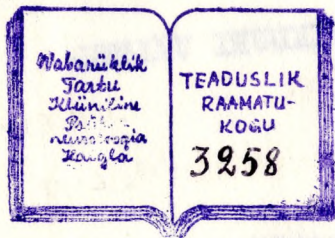 Wabariiklik
Tartu
Kliiniline
neuroloogia
Haigla
TEADUSLIK
RAAMATU-
KOGU
3258